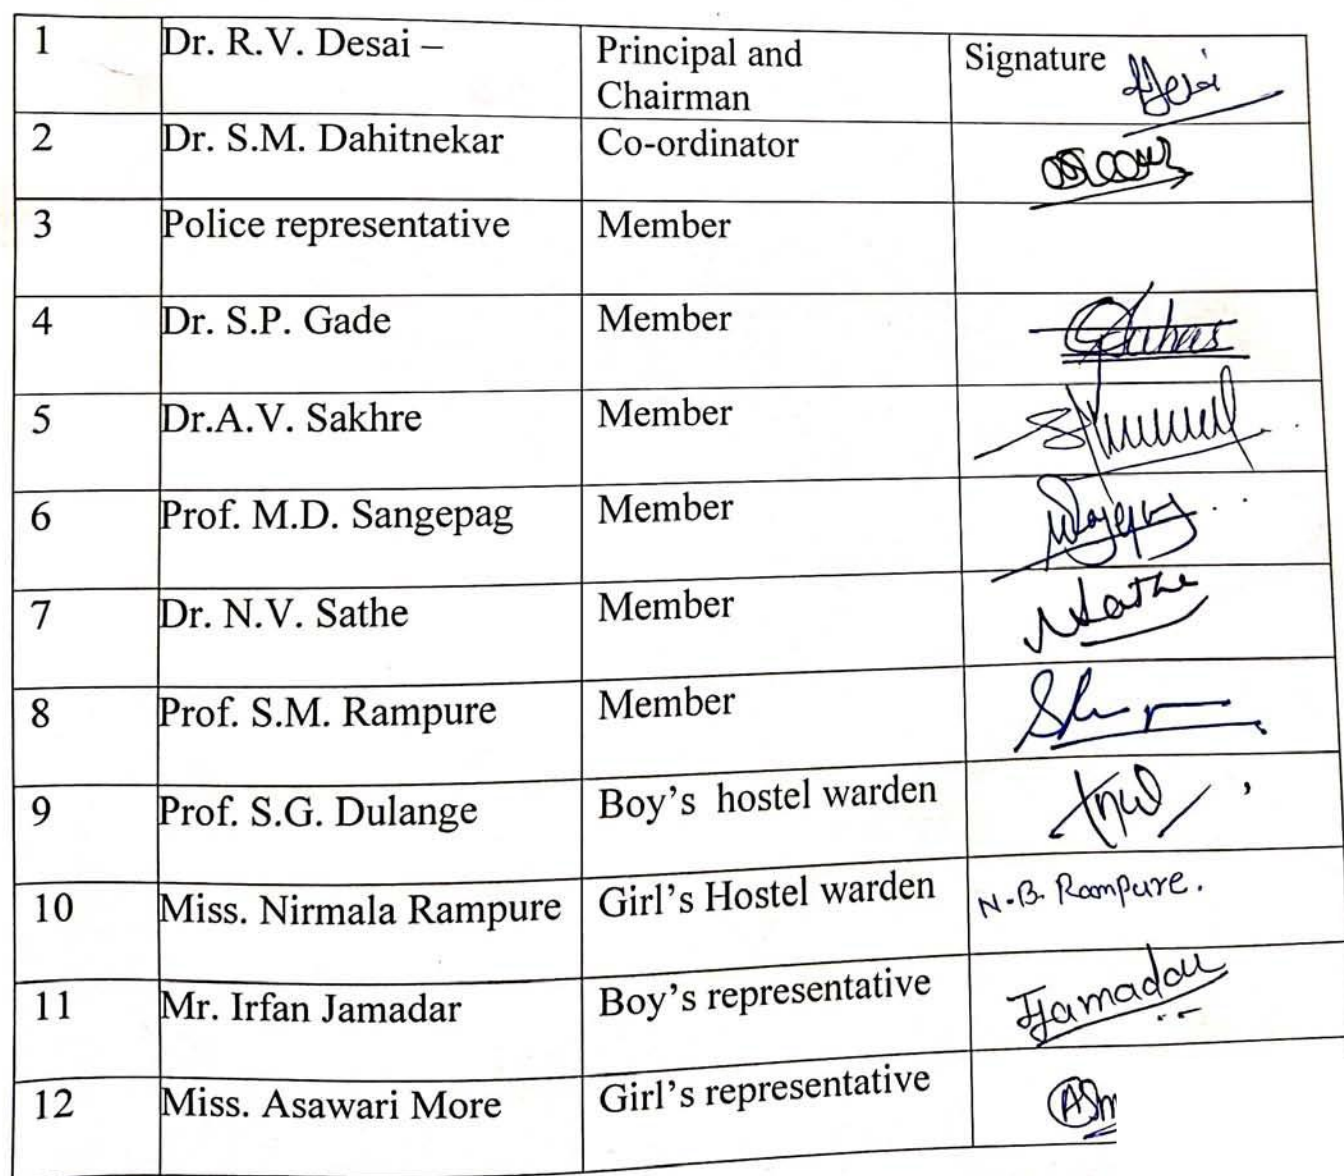 1 Dr. R.V. Desai – Principal and Signature
Chairman
2 Dr. S.M. Dahitnekar Co-ordinator
3 Police representative Member
4 Dr. S.P. Gade Member
5 Dr.A.V. Sakhre Member
6 Prof. M.D. Sangepag Member
7 Dr. N.V. Sathe Member
8 Prof. S.M. Rampure Member
9 Prof. S.G. Dulange Boy's hostel warden
10 Miss. Nirmala Rampure Girl's Hostel warden N.B. Rampure.
11 Mr. Irfan Jamadar Boy's representative IJamadar
12 Miss. Asawari More Girl's representative